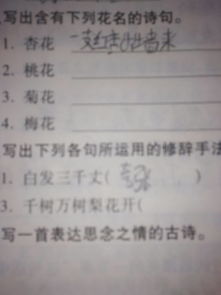 写出含有下列花名的诗句。
1. 杏花 一支红杏出墙来
2. 桃花
3. 菊花
4. 梅花
写出下列各句所运用的修辞手法
1. 白发三千丈(夸张)
3. 千树万树梨花开(
写一首表达思念之情的古诗。